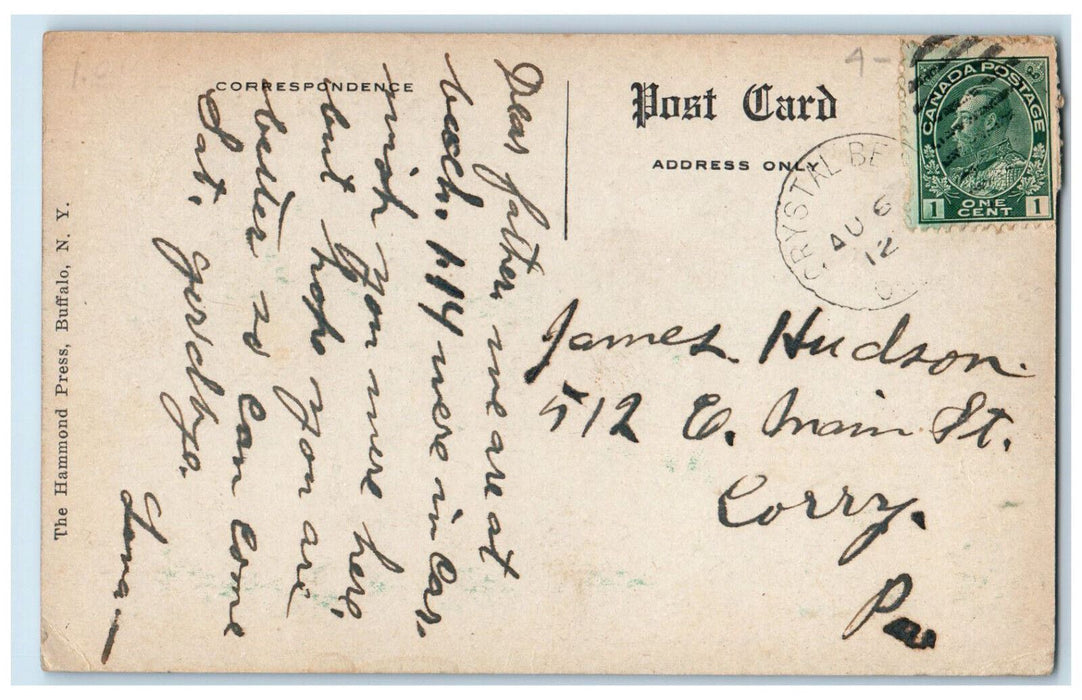 CORRESPONDENCE
Post Card
ADDRESS ONLY
CANADA POSTAGE
1 ONE CENT 1
CRYSTAL BE
AU 6
12
Dear father, we are at
beach. 114 were in car.
wish you were here,
but hope you are
better so can come
Sat. goodbye.
James. Hudson.
512 E. Main St.
Corry.
Pa
The Hammond Press, Buffalo, N. Y.